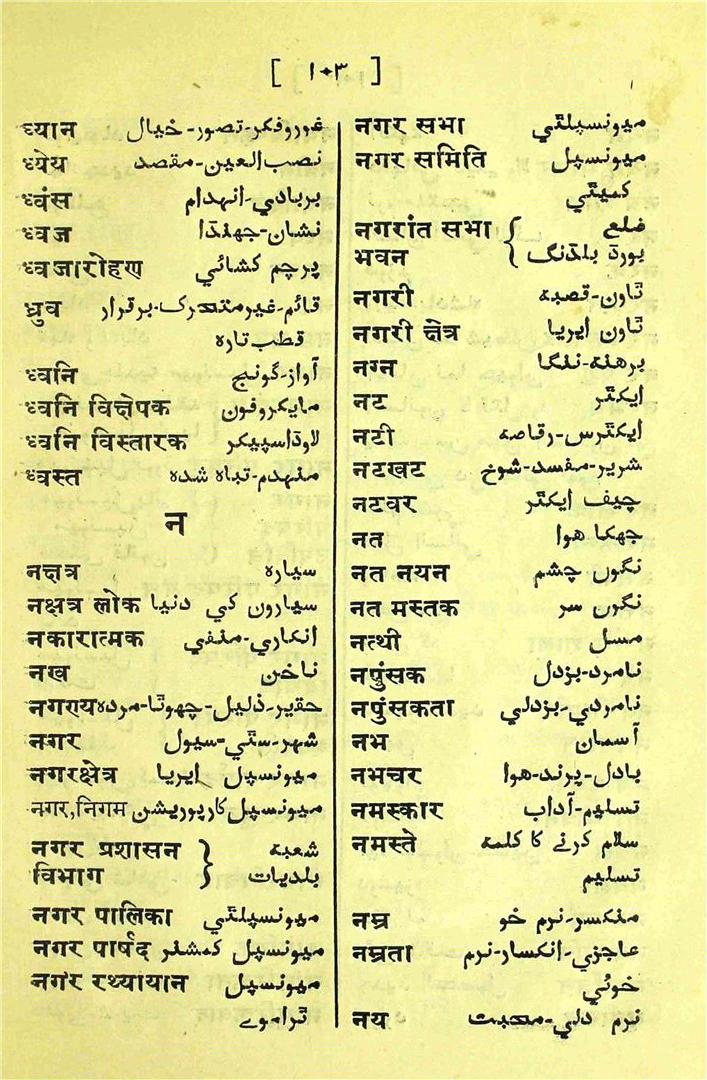 [ ١٠٣ ]
ध्यान غوروفکر-تصور-خیال
ध्येय نصب العین-مقصد
ध्वंस بربادي-انہدام
ध्वज نشان-جھنڈا
ध्वजारोहण پرچم کشائي
ध्रुव قائم-غیرمتحرک-برقرار
قطب تارہ
ध्वनि آواز-گونج
ध्वनि विक्षेपक مایکروفون
ध्वनि विस्तारक لاوڈاسپیکر
ध्वस्त منہدم-تباہ شدہ
न
नक्षत्र سیارہ
नक्षत्र लोक سیارون کي دنیا
नकारात्मक انکاري-منفي
नख ناخن
नगण्य حقیر-ذلیل-چھوٹا-مردہ
नगर شہر-سٹي-سیول
नगरक्षेत्र میونسپل ایریا
नगर,निगम میونسپل کارپوریشن
नगर प्रशासन } شعبہ
विभाग بلدیات
नगर पालिका میونسپلٹي
नगर पार्षद میونسپل کمشنر
नगर रथ्यायान میونسپل
ٹراموے
नगर सभा میونسپلٹي
नगर समिति میونسپل
کمیٹي
नगरांत सभा { ضلع
भवन بورڈ بلڈنگ
नगरी ٹاون-قصبہ
नगरी क्षेत्र ٹاون ایریا
नग्न برھنہ-ننگا
नट ایکٹر
नटी ایکٹرس-رقاصہ
नटखट شریر-مفسد-شوخ
नटवर چیف ایکٹر
नत جھکا ھوا
नत नयन نگوں چشم
नत मस्तक نگوں سر
नत्थी مسل
नपुंसक نامرد-بزدل
नपुंसकता نامردي-بزدلي
नभ آسمان
नभचर بادل-پرند-ھوا
नमस्कार تسلیم-آداب
नमस्ते سلام کرنے کا کلمہ
تسلیم
नम्र منکسر-نرم خو
नम्रता عاجزي-انکسار-نرم
خوئي
नय نرم دلي-محبت